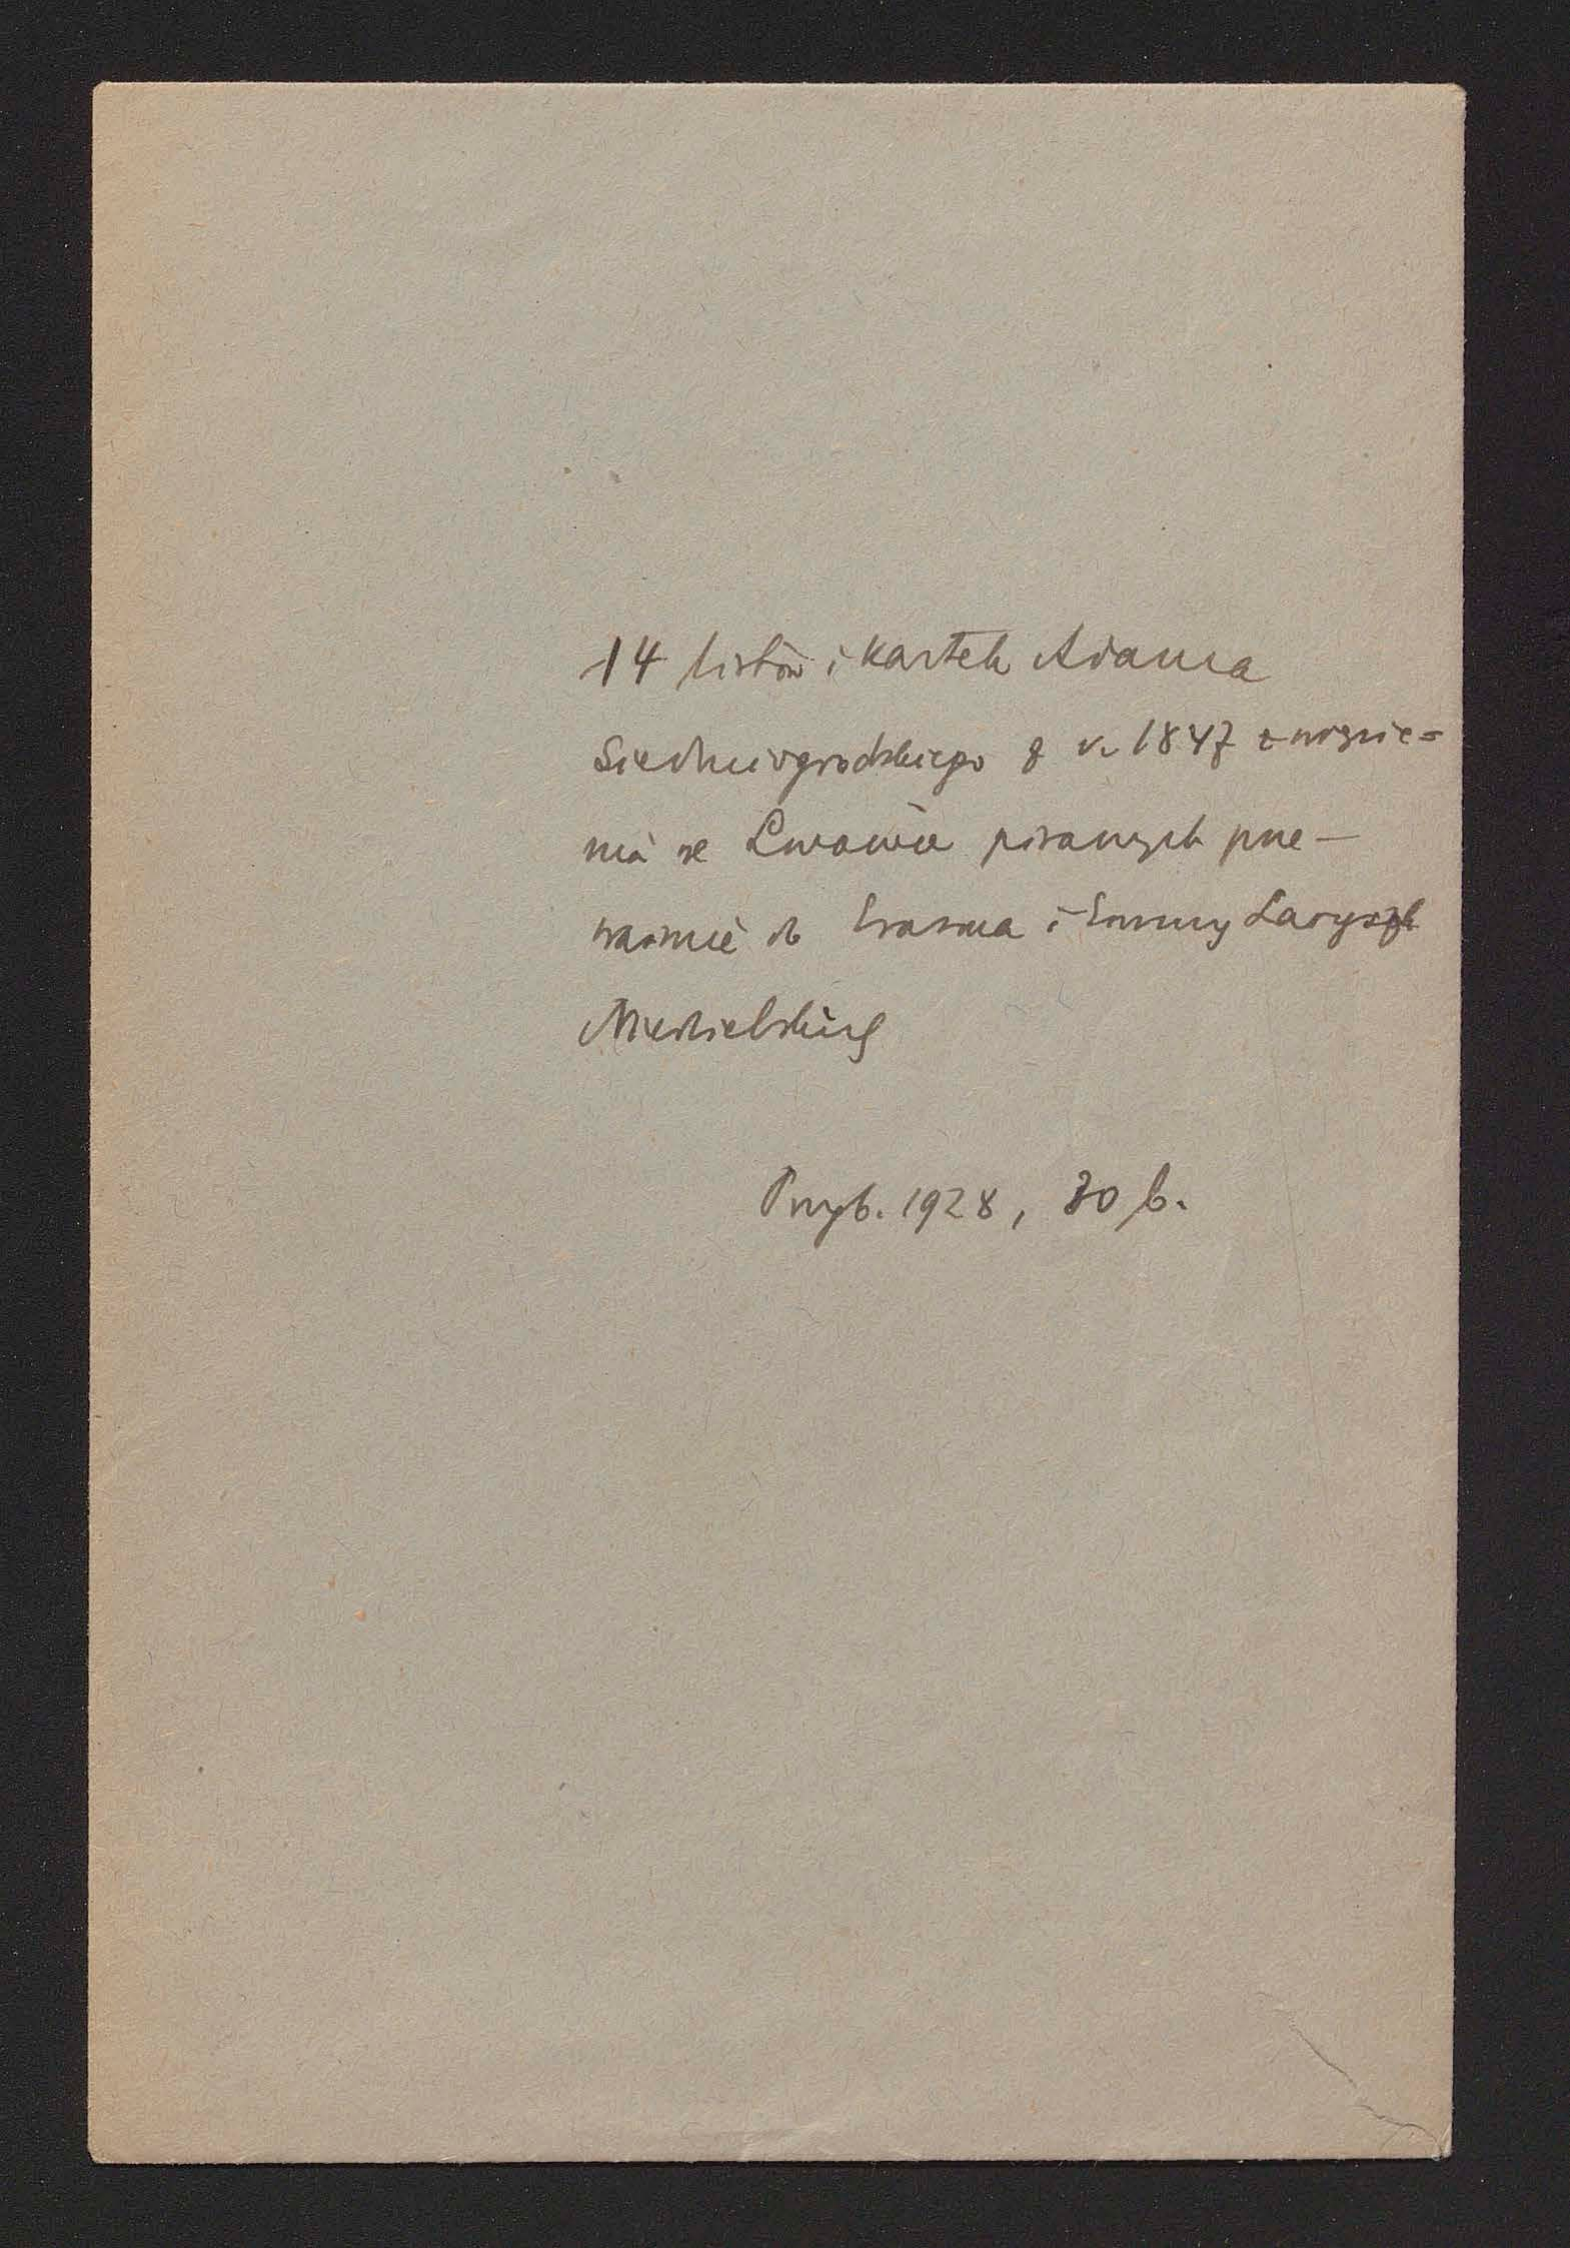 14 listów i kartek Adama
Siedmiogrodzkiego z r. 1847 z więzie=
nia we Lwowie pisanych prze—
ważnie do Erazma i Emmy Larysz
Niedzielskich
Przyb. 1928, 30 b.